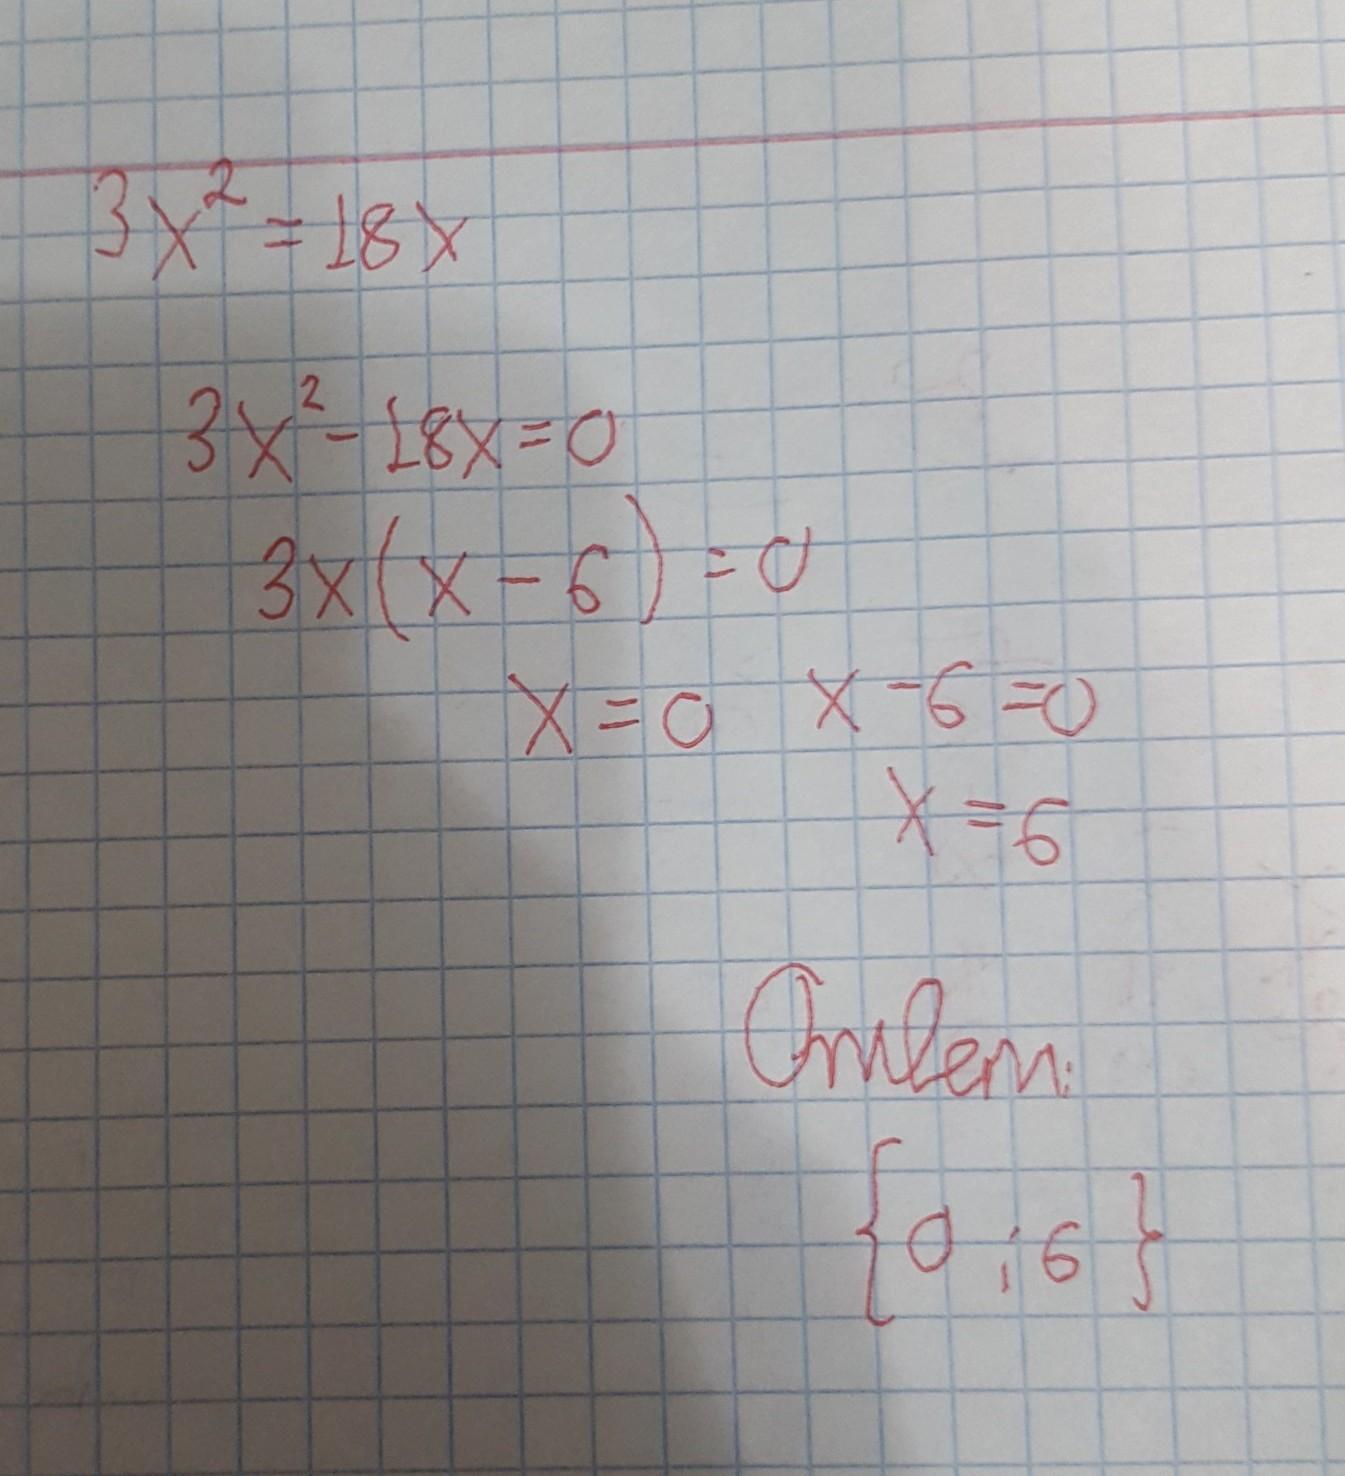 3x² = 18x
3x² - 18x = 0
3x(x - 6) = 0
x = 0 x - 6 = 0
x = 6
Ответ:
{0 ; 6}